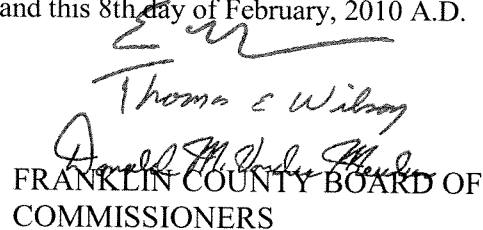 and this 8th day of February, 2010 A.D.
Thomas E Wilson
Donald M.
FRANKLIN COUNTY BOARD OF
COMMISSIONERS